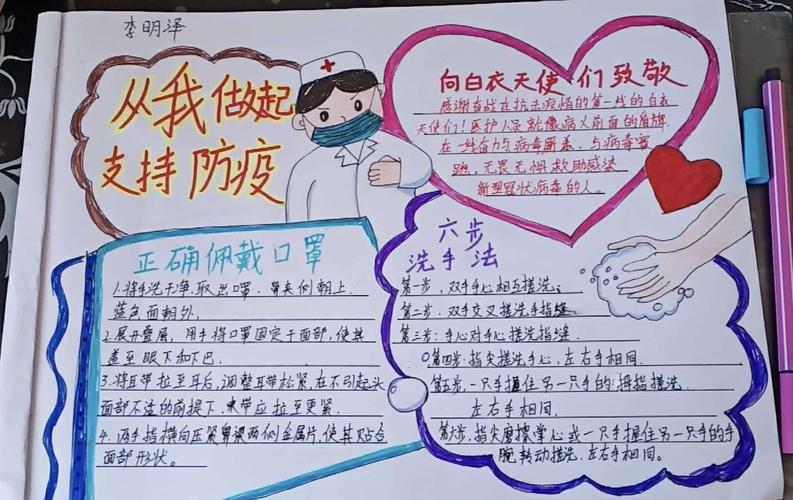 李明泽
从我做起
支持防疫
向白衣天使们致敬
感谢奋战在抗击疫情的第一线的白衣
天使们！医护人员就像病人前面的盾牌
在一线奋力与病毒厮杀、与病毒赛
跑，无畏无惧救助感染
新型冠状病毒的人。
正确佩戴口罩
1.将手洗干净,取出口罩，鼻夹侧朝上.
蓝色面朝外.
2.展开叠层，用手将口罩固定于面部,使其
盖至眼下和下巴.
3.将耳带拉至耳后,调整耳带松紧,在不引起头
面部不适的前提下,带应拉至更紧.
4.两手指横向压紧鼻梁两侧金属片,使其贴合
面部形状。
六步
洗手法
第一步,双手心相互搓洗.
第二步.双手交叉搓洗手指缝.
第三步:手心对手心搓洗指缝.
第四步:指尖搓洗手心,左右手相同.
第五步.一只手握住另一只手的拇指搓洗.
左右手相同.
第六步,指尖摩擦掌心或一只手握住另一只手的手
腕转动搓洗.左右手相同。